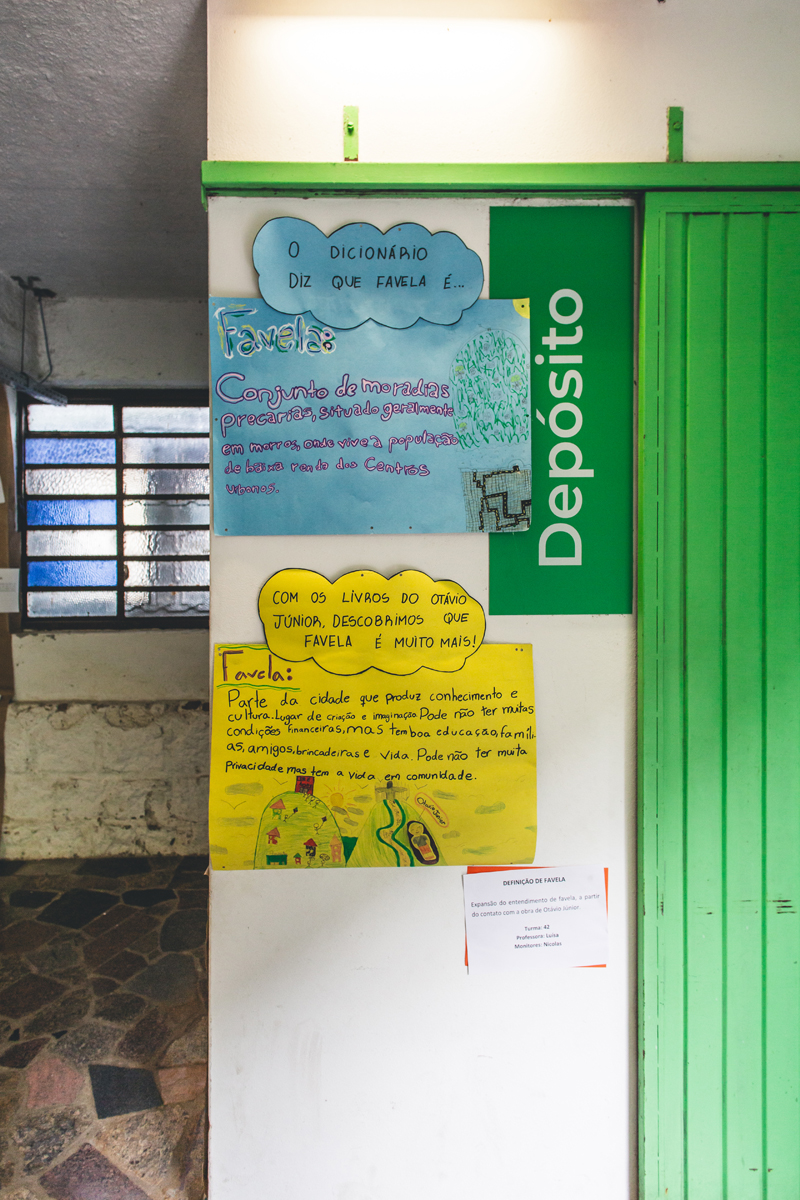 O DICIONÁRIO
DIZ QUE FAVELA É...
Favela:
Conjunto de moradias
precarias, situado geralmente
em morros, onde vive a população
de baixa renda dos Centros
urbanos.
Depósito
COM OS LIVROS DO OTÁVIO
JÚNIOR, DESCOBRIMOS QUE
FAVELA É MUITO MAIS!
Favela:
Parte da cidade que produz conhecimento e
cultura. Lugar de criação e imaginação. Pode não ter muitas
condições financeiras, mas tem boa educação, famíli-
as, amigos, brincadeiras e vida. Pode não ter muita
privacidade mas tem a vida em comunidade.
Otávio Júnior
DEFINIÇÃO DE FAVELA
Expansão do entendimento de favela, a partir
do contato com a obra de Otávio Júnior.
Turma: 42
Professora: Luisa
Monitores: Nicolas